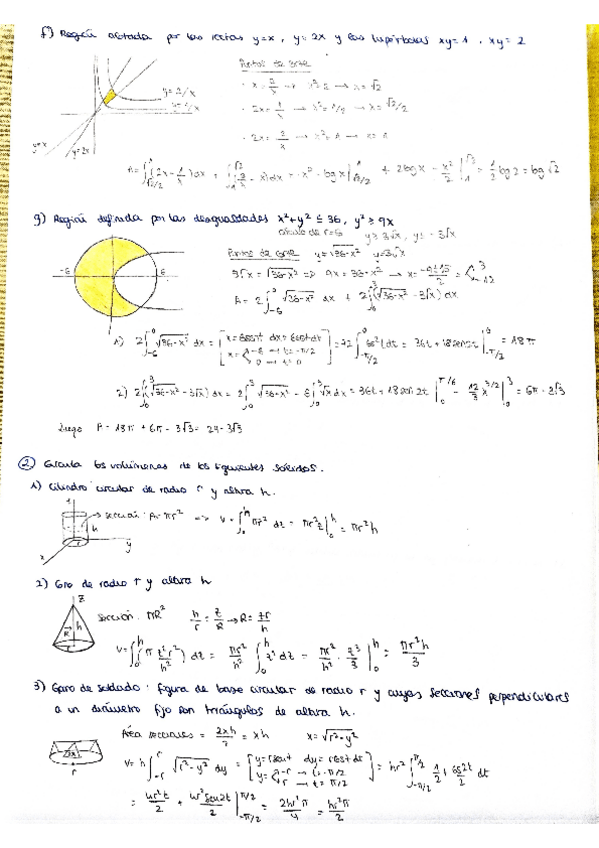 f) Región acotada por las rectas y=x, y=2x y las hipérbolas xy=1, xy=2
Puntos de corte
· x = 2/x → x²=2 → x=√2
y=2/x
y=1/x
· 2x = 1/x → x²=1/2 → x=√2/2
y=x
y=2x
· 2x = 2/x → x²=1 → x=1
A=∫_{√2/2}^{1} (2x - 1/x) dx + ∫_{1}^{√2} (2/x - x) dx = x² - log x |_{√2/2}^{1} + 2log x - x²/2 |_{1}^{√2} = 1/2 log 2 = log √2
g) Región definida por las desigualdades x²+y² ≤ 36, y² ≥ 9x
círculo de r=6 y ≥ 3√x, y ≤ -3√x
Puntos de corte y=√36-x² y=3√x
-6
6
3√x = √36-x² => 9x = 36-x² → x = -9±15/2 = < 3 -12
A = 2∫_{-6}^{0} √36-x² dx + 2∫_{0}^{3} (√36-x² - 3√x) dx
1) 2∫_{-6}^{0} √36-x² dx = [x=6sent dx=6cost dt x= < -6 → t=-π/2 0 → t=0] = 72∫_{-π/2}^{0} cos²t dt = 36t + 18sen2t |_{-π/2}^{0} = 18π
2) 2∫_{0}^{3} (√36-x² - 3√x) dx = 2∫_{0}^{3} √36-x² - 6∫_{0}^{3} √x dx = 36t + 18sen2t |_{0}^{π/6} - 12/3 x^{3/2} |_{0}^{3} = 6π - 3√3
Luego A = 18π + 6π - 3√3 = 24 - 3√3
② Calcula los volúmenes de los siguientes sólidos.
1) Cilindro circular de radio r y altura h.
sección: A=πr² => V = ∫_{0}^{h} πr² dz = πr²z |_{0}^{h} = πr²h
h
r
y
2) Cono de radio r y altura h
z
Sección: πR² h/r = z/R → R = zr/h
R
h
r
V=∫_{0}^{h} (π z²r²/h²) dz = πr²/h² ∫_{0}^{h} z² dz = πr²/h² · z³/3 |_{0}^{h} = πr²h/3
3) Gorro de soldado: figura de base circular de radio r y cuyas secciones perpendiculares
a un diámetro fijo son triángulos de altura h.
Área secciones = 2xh/2 = xh x=√r²-y²
2x
r
V= h∫_{-r}^{r} √r²-y² dy = [y=rsent dy=rcost dt y= < -r → t=-π/2 r → t=π/2] = hr² ∫_{-π/2}^{π/2} 1/2 + cos2t/2 dt
= hr²t/2 + hr²sen2t/2 |_{-π/2}^{π/2} = 2hr²π/4 = hr²π/2